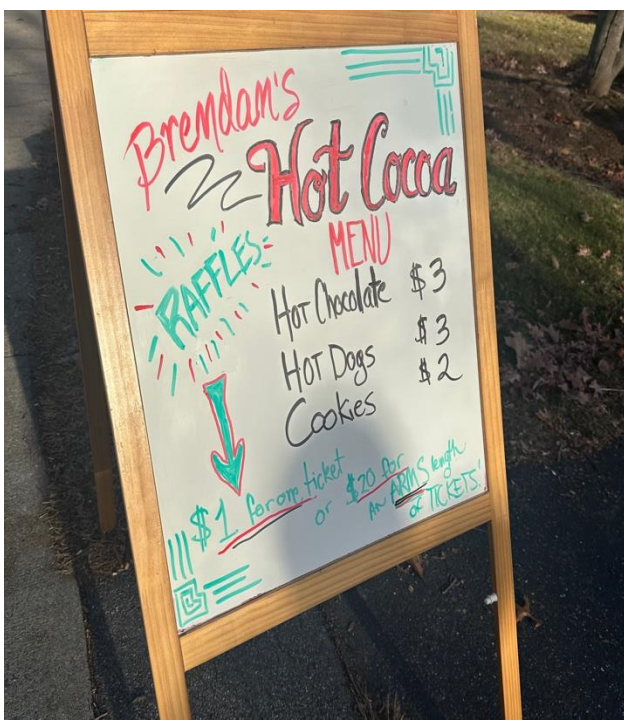 Brendan's
Hot Cocoa
MENU
RAFFLES
Hot Chocolate $3
Hot Dogs $3
Cookies $2
$1 for one ticket
or $20 for
an ARMS length
of TICKETS!